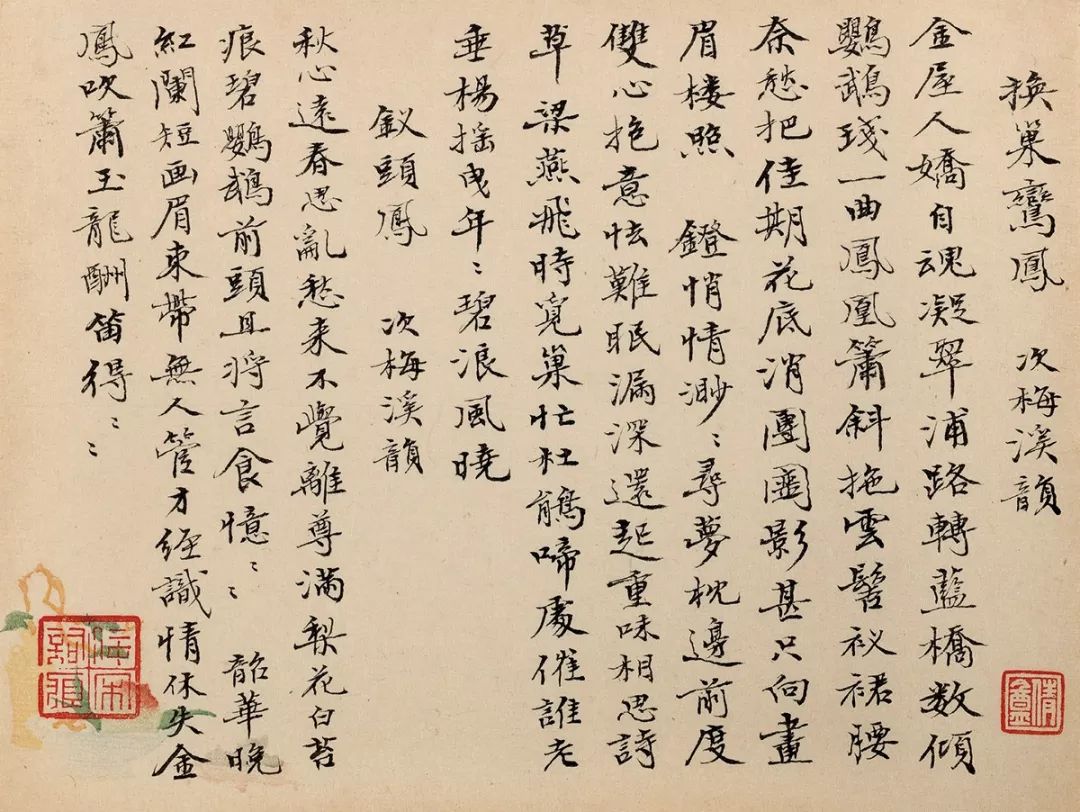 換巢鸞鳳 次梅溪韻
金屋人嬌自魂凝翠浦路轉藍橋数傾
鸚鵡琖一曲鳳凰簫斜拖雲髻衱裙腰
奈愁把佳期花底消團圞影甚只向畫
眉楼照 鐙悄情渺〻尋夢枕邊前度
雙心抱意怯難眠漏深還起重味相思詩
草梁燕飛時寛巢忙杜鵑啼處催誰老
垂楊揺曳年〻碧浪風曉
釵頭鳳 次梅溪韻
秋心遠春思亂愁来不覺離尊満梨花白苔
痕碧鸚鵡前頭且将言食憶〻〻 韶華晚
紅闌短画眉束帶無人管方經識情休失金
鳳吹簫玉龍酬笛得〻〻